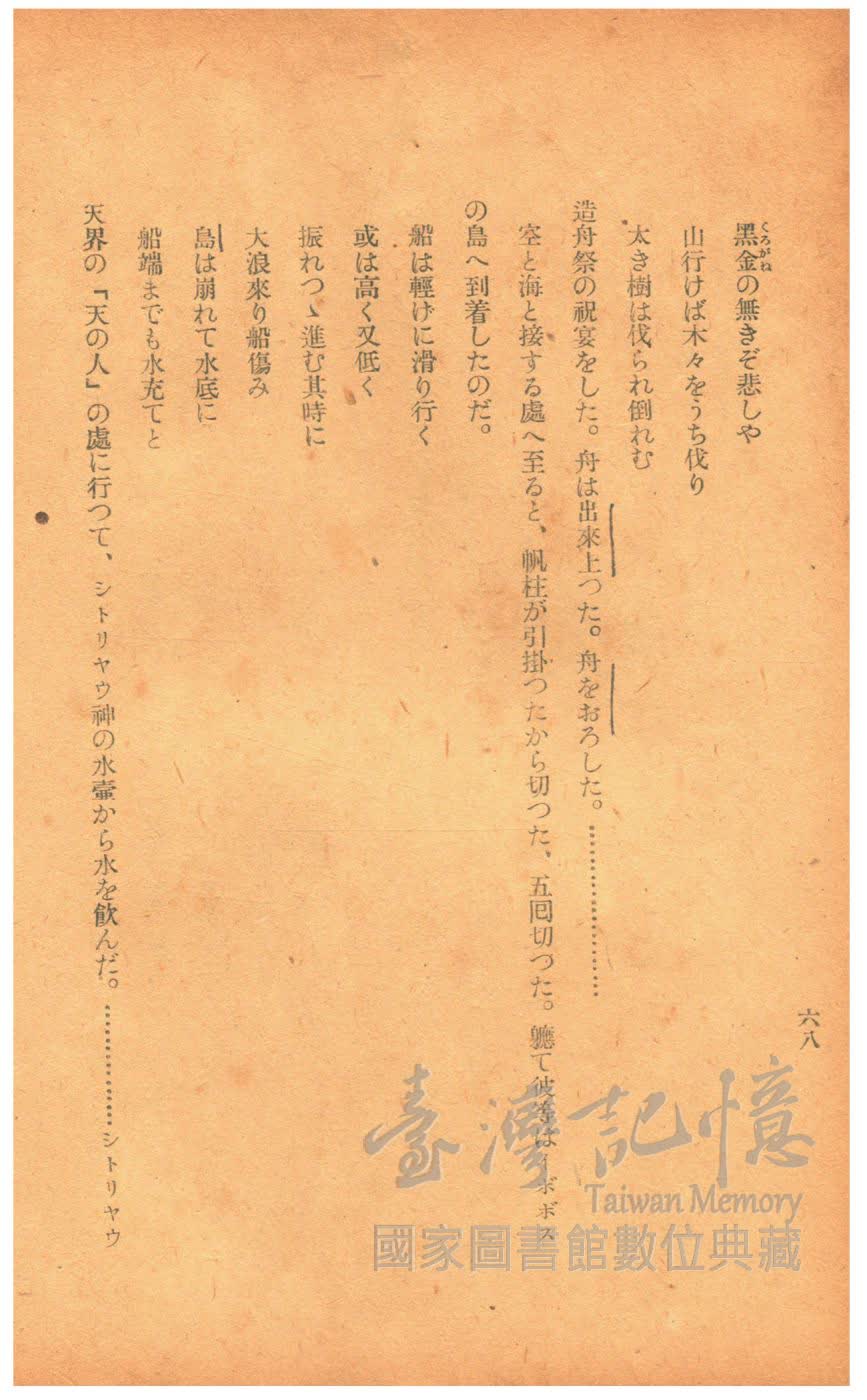 黑金の無きぞ悲しや
くろがね
山行けば木々をうち伐り
太き樹は伐られ倒れむ
造舟祭の祝宴をした。舟は出來上つた。舟をおろした。……………………
空と海と接する處へ至ると、帆柱が引掛つたから切つた、五囘切つた。軈て彼等はイボボス
の島へ到着したのだ。
船は輕げに滑り行く
或は高く又低く
振れつゝ進む其時に
大浪來り船傷み
島は崩れて水底に
船端までも水充てと
天界の「天の人」の處に行つて、シトリヤウ神の水壷から水を飮んだ。………………シトリヤウ
六八
臺灣記憶
Taiwan Memory
國家圖書館數位典藏